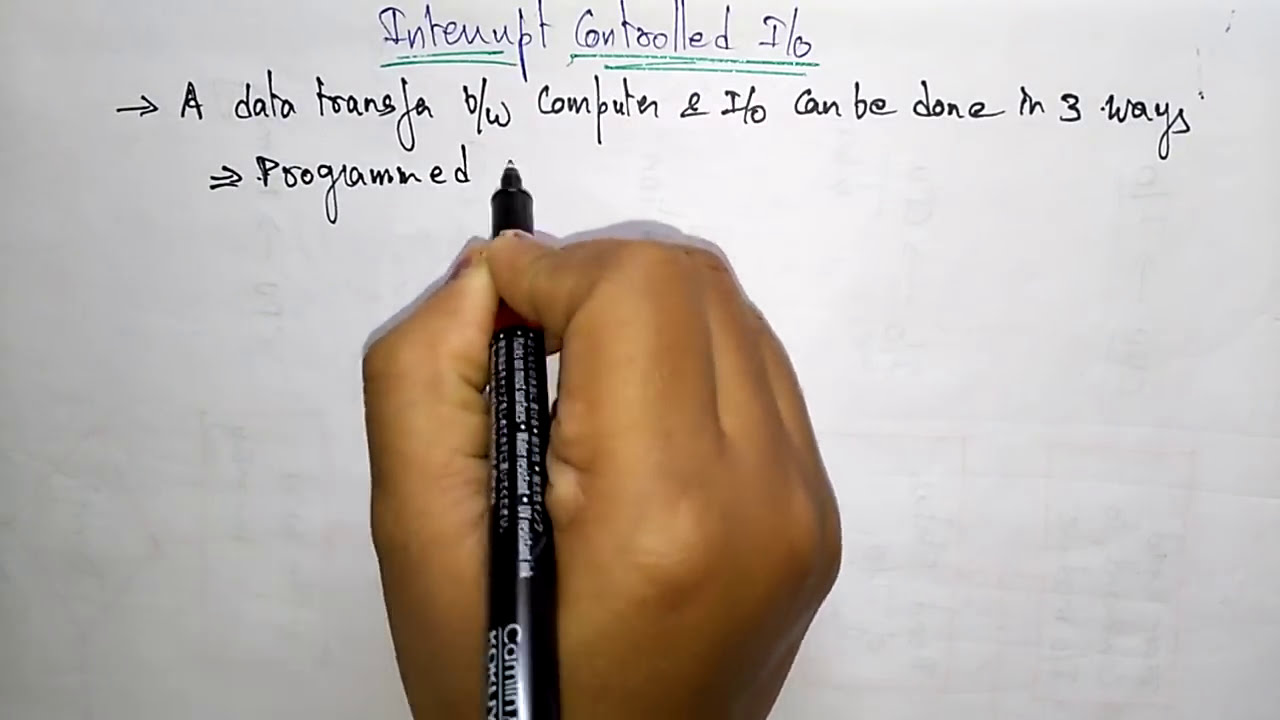 Interrupt Controlled I/o
→ A data transfer b/w Computer & I/o can be done in 3 ways
⇒ Programmed
Marks on most surfaces • Water resistant • UV resistant ink
Camlin
KOKUY